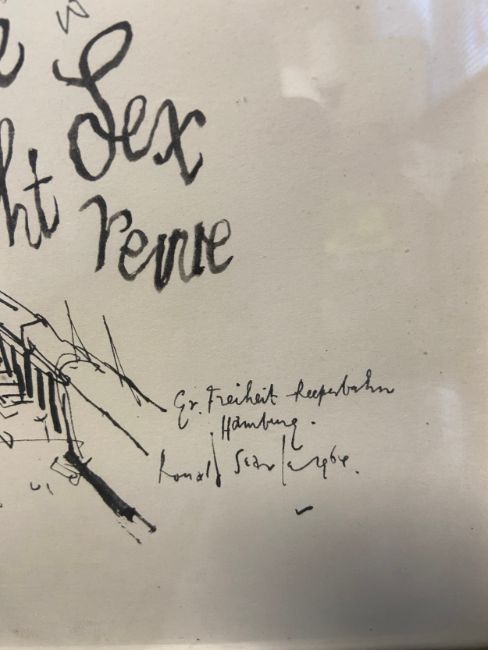 Sex
ht revue
Gr. Freiheit Reeperbahn
Hamburg.
Ronald Searle 1964.